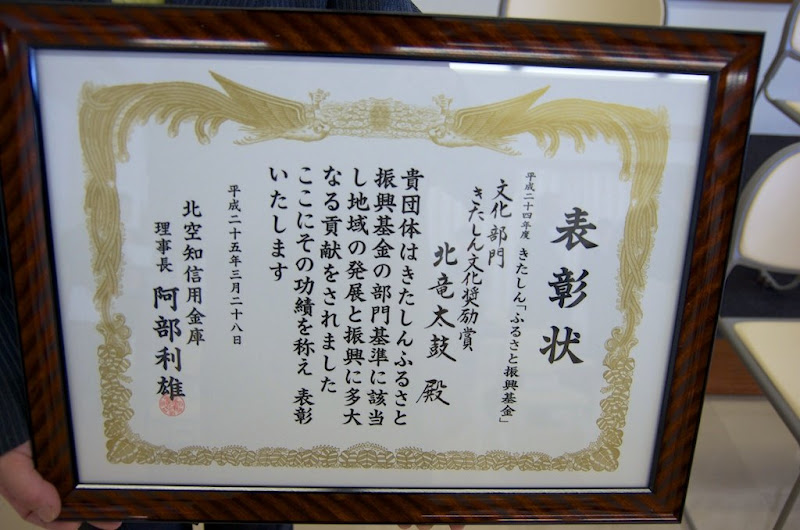 表彰状
平成二十四年度 きたしん「ふるさと振興基金」
文化部門
きたしん文化奨励賞
北竜太鼓 殿
貴団体はきたしんふるさと
振興基金の部門基準に該当
し地域の発展と振興に多大
なる貢献をされました
ここにその功績を称え 表彰
いたします
平成二十五年三月二十八日
北空知信用金庫
理事長 阿部利雄